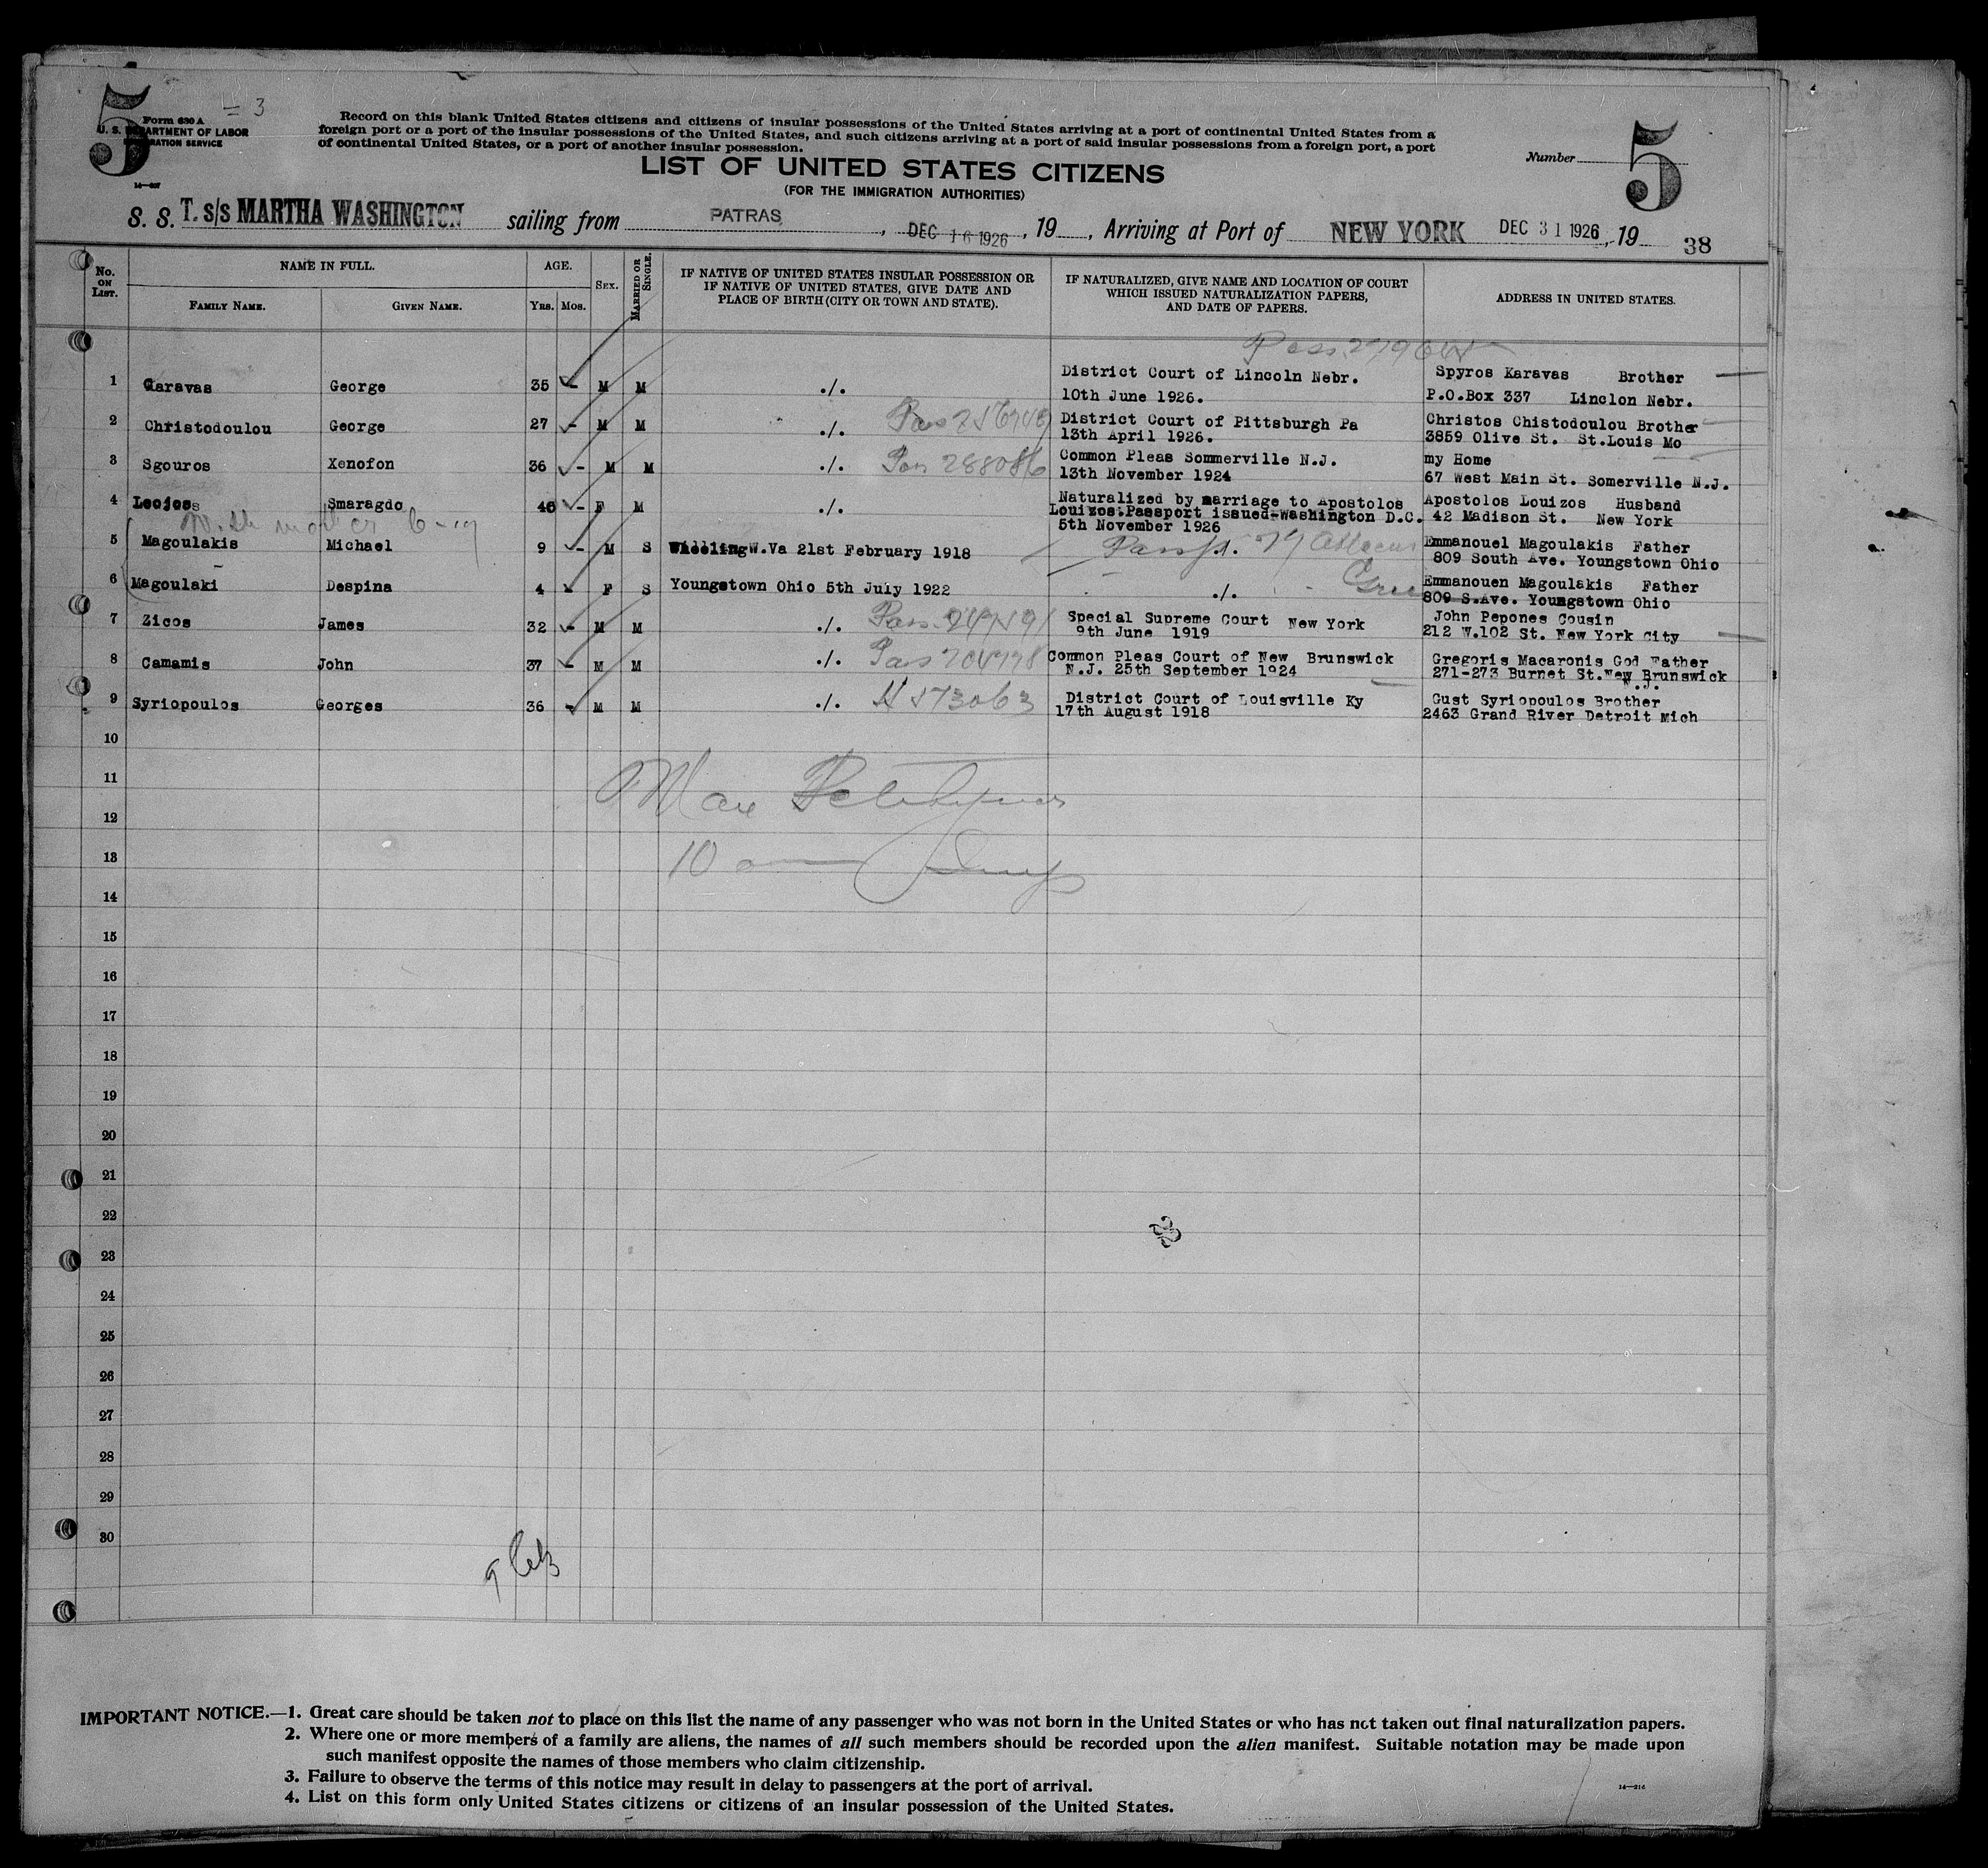 5
= 3
Form 630 A
U. S. DEPARTMENT OF LABOR
Record on this blank United States citizens and citizens of insular possessions of the United States arriving at a port of continental United States from a
foreign port or a port of the insular possessions of the United States, and such citizens arriving at a port of said insular possessions from a foreign port, a port
of continental United States, or a port of another insular possession.
LIST OF UNITED STATES CITIZENS
(FOR THE IMMIGRATION AUTHORITIES)
Number 5
S. S. T. s/s MARTHA WASHINGTON sailing from PATRAS, DEC 16 1926, 19 , Arriving at Port of NEW YORK DEC 31 1926, 19
38
No. ON LIST. NAME IN FULL. AGE. SEX. MARRIED OR SINGLE. IF NATIVE OF UNITED STATES INSULAR POSSESSION OR IF NATIVE OF UNITED STATES, GIVE DATE AND PLACE OF BIRTH (CITY OR TOWN AND STATE). IF NATURALIZED, GIVE NAME AND LOCATION OF COURT WHICH ISSUED NATURALIZATION PAPERS, AND DATE OF PAPERS. ADDRESS IN UNITED STATES.
FAMILY NAME. GIVEN NAME. YRS. MOS.
1 Garavas George 35 - M M ./. District Court of Lincoln Nebr. Spyros Karavas Brother
10th June 1926. P.O.Box 337 Linclon Nebr.
2 Christodoulou George 27 - M M ./. District Court of Pittsburgh Pa Christos Chistodoulou Brother
13th April 1926. 3859 Olive St. St.Louis Mo
3 Sgouros Xenofon 36 - M M ./. Pas 288086 Common Pleas Sommerville N.J. my Home
13th November 1924 67 West Main St. Somerville N.J.
4 Smaragdo 40 - F M ./. Naturalized by marriage to Apostolos Apostolos Louizos Husband
Louizos.Passport issued-Washington D.C. 42 Madison St. New York
5th November 1926
With mother 6-19
5 Magoulakis Michael 9 - M S W.Va 21st February 1918 Emmanouel Magoulakis Father
809 South Ave. Youngstown Ohio
6 Magoulaki Despina 4 - F S Youngstown Ohio 5th July 1922 ./. Emmanouen Magoulakis Father
809 S.Ave. Youngstown Ohio
7 Zicos James 32 - M M ./. Special Supreme Court New York John Pepones Cousin
9th June 1919 212 W.102 St. New York City
8 Camamis John 37 - M M ./. Common Pleas Court of New Brunswick Gregoris Macaronis God Father
N.J. 25th September 1924 271-273 Burnet St.New Brunswick
N.J.
9 Syriopoulos Georges 36 - M M ./. 573063 District Court of Louisville Ky Gust Syriopoulos Brother
17th August 1918 2463 Grand River Detroit Mich
10
11
12
13
14
15
16
17
18
19
20
21
22
23
24
25
26
27
28
29
30
IMPORTANT NOTICE.—1. Great care should be taken not to place on this list the name of any passenger who was not born in the United States or who has not taken out final naturalization papers.
2. Where one or more members of a family are aliens, the names of all such members should be recorded upon the alien manifest. Suitable notation may be made upon
such manifest opposite the names of those members who claim citizenship.
3. Failure to observe the terms of this notice may result in delay to passengers at the port of arrival.
4. List on this form only United States citizens or citizens of an insular possession of the United States.